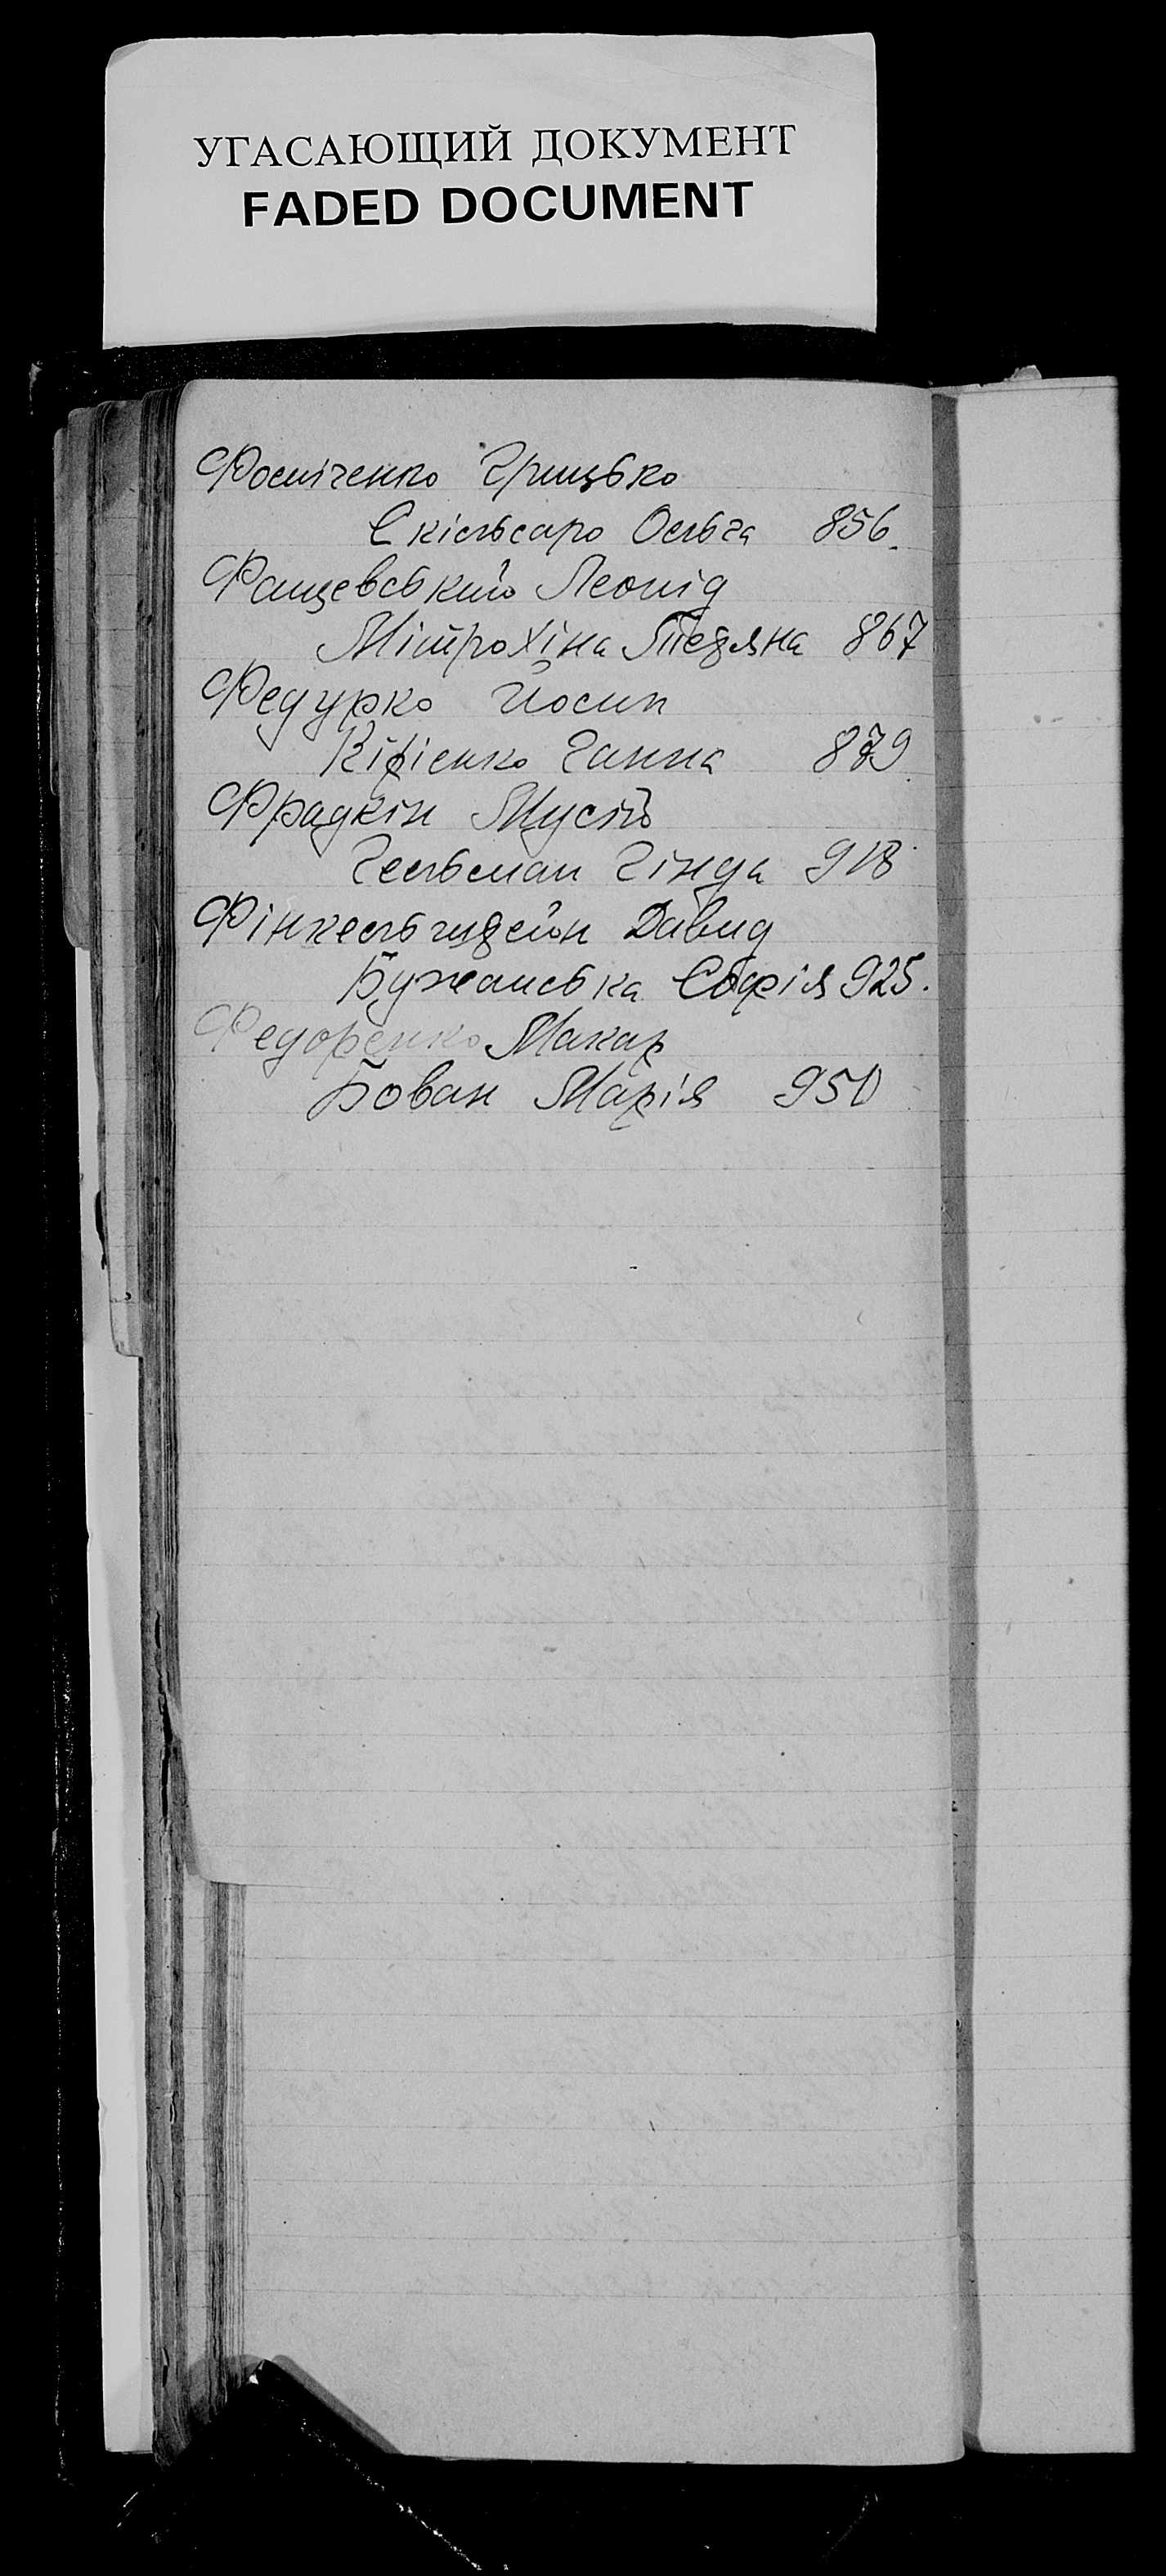 УГАСАЮЩИЙ ДОКУМЕНТ
FADED DOCUMENT
Фоміченко Грицько
Ольга 856.
Фащевський Леонід
Мітрохіна Тетяна 867
Федурко Йосип
Кірієнко Ганна 879
Фрадкін Мусій
Гельман Гінда 918
Фінкельштейн Давид
Бужанська Софія 925.
Федоренко Макар
Бован Марія 950